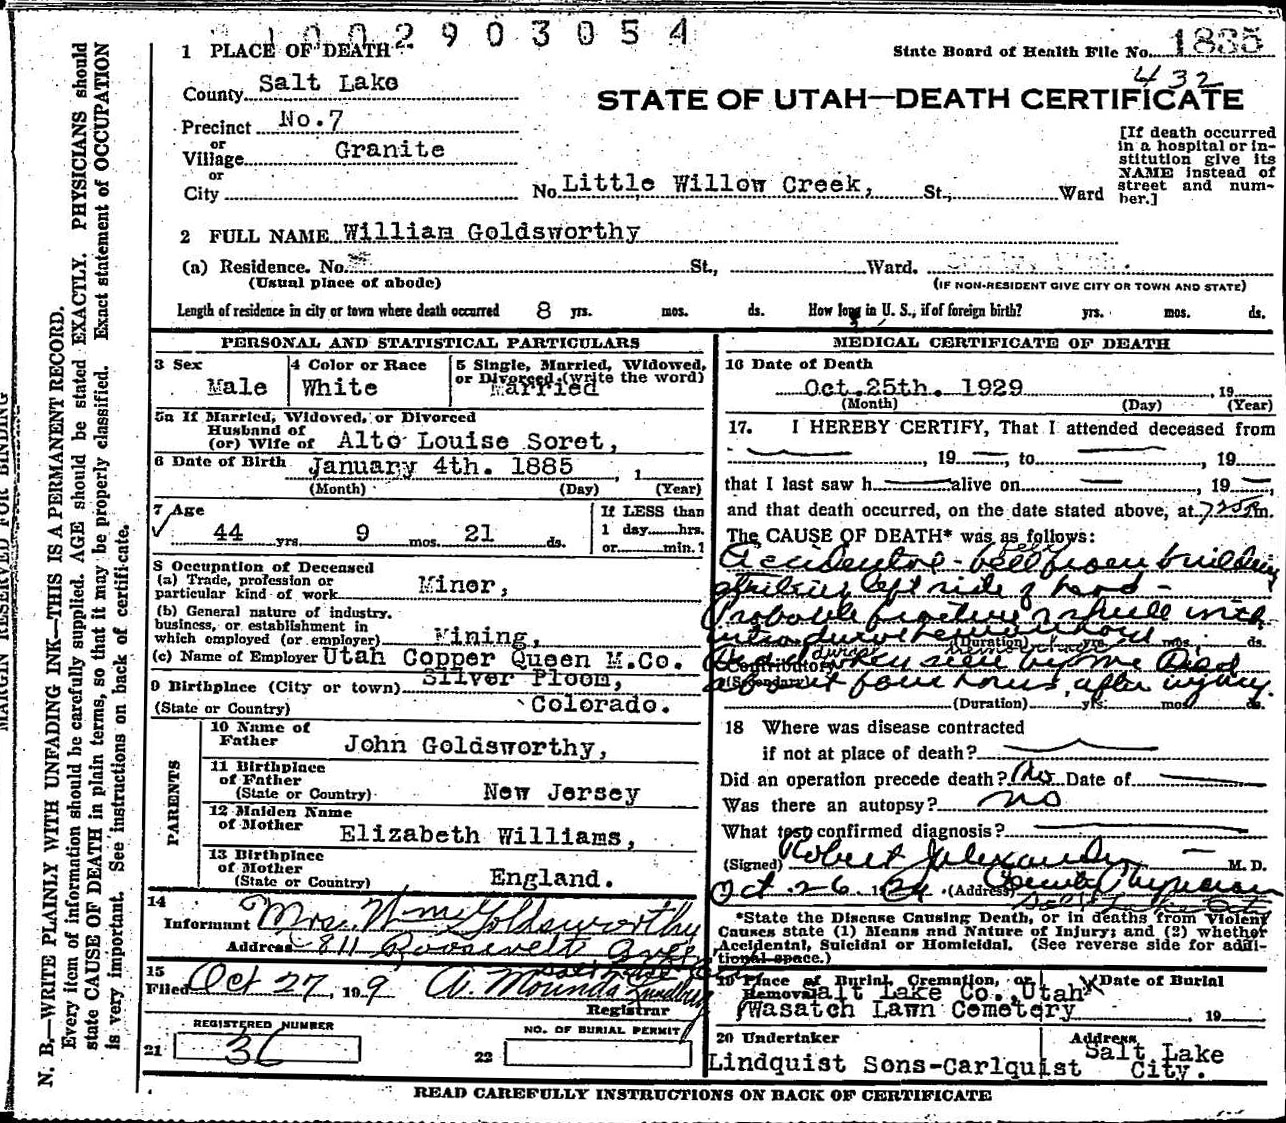 1002903054
1 PLACE OF DEATH
State Board of Health File No. 1835
432
County Salt Lake
STATE OF UTAH—DEATH CERTIFICATE
Precinct No.7
or
Village Granite
or
City
No. Little Willow Creek, St., Ward
[If death occurred
in a hospital or in-
stitution give its
NAME instead of
street and num-
ber.]
2 FULL NAME William Goldsworthy
(a) Residence. No. St., Ward.
(Usual place of abode)
(IF NON-RESIDENT GIVE CITY OR TOWN AND STATE)
Length of residence in city or town where death occurred 8 yrs. mos. ds. How long in U. S., if of foreign birth? yrs. mos. ds.
PERSONAL AND STATISTICAL PARTICULARS
3 Sex
Male
4 Color or Race
White
5 Single, Married, Widowed,
or Divorced (write the word)
Married
5a If Married, Widowed, or Divorced
Husband of
(or) Wife of Alto Louise Soret,
6 Date of Birth January 4th. 1885 , 1
(Month) (Day) (Year)
7 Age
44 yrs. 9 mos. 21 ds.
If LESS than
1 day hrs.
or min.?
8 Occupation of Deceased
(a) Trade, profession or
particular kind of work Miner,
(b) General nature of industry,
business, or establishment in
which employed (or employer) Mining,
(c) Name of Employer Utah Copper Queen M.Co.
9 Birthplace (City or town) Silver Ploom,
(State or Country) Colorado.
PARENTS
10 Name of
Father John Goldsworthy,
11 Birthplace
of Father
(State or Country) New Jersey
12 Maiden Name
of Mother Elizabeth Williams,
13 Birthplace
of Mother
(State or Country) England.
14
Informant Mrs. Wm Goldsworthy
Address 811 Roosevelt Ave
Salt Lake City
15
Filed Oct 27, 199 A. Mounds Lundberg
Registrar
REGISTERED NUMBER
21 36
NO. OF BURIAL PERMIT
22
MEDICAL CERTIFICATE OF DEATH
16 Date of Death
Oct. 25th. 1929 , 19
(Month) (Day) (Year)
17. I HEREBY CERTIFY, That I attended deceased from
, 19 , to , 19
that I last saw h alive on , 19
and that death occurred, on the date stated above, at 725 P.m.
The CAUSE OF DEATH* was as follows:
Accidental - fell from building
striking left side of head -
Probable fracture of skull with
(Duration) yrs. mos. ds.
Contributory
Dead when seen by me Died
(Secondary)
about four hours after injury.
(Duration) yrs. mos. ds.
18 Where was disease contracted
if not at place of death?
Did an operation precede death? No Date of
Was there an autopsy? no
What test confirmed diagnosis?
(Signed) Robert J Alexander M. D.
Oct. 26. 1929. (Address) County Physician
*State the Disease Causing Death, or in deaths from Violent
Causes state (1) Means and Nature of Injury; and (2) whether
Accidental, Suicidal or Homicidal. (See reverse side for addi-
tional space.)
19 Place of Burial, Cremation, or
Removal Salt Lake Co., Utah
Wasatch Lawn Cemetery
Date of Burial
, 19
20 Undertaker
Lindquist Sons-Carlquist
Address
Salt Lake
City.
READ CAREFULLY INSTRUCTIONS ON BACK OF CERTIFICATE
MARGIN RESERVED FOR BINDING
N. B.—WRITE PLAINLY WITH UNFADING INK—THIS IS A PERMANENT RECORD.
Every item of information should be carefully supplied. AGE should be stated EXACTLY. PHYSICIANS should
state CAUSE OF DEATH in plain terms, so that it may be properly classified. Exact statement of OCCUPATION
is very important. See instructions on back of certificate.